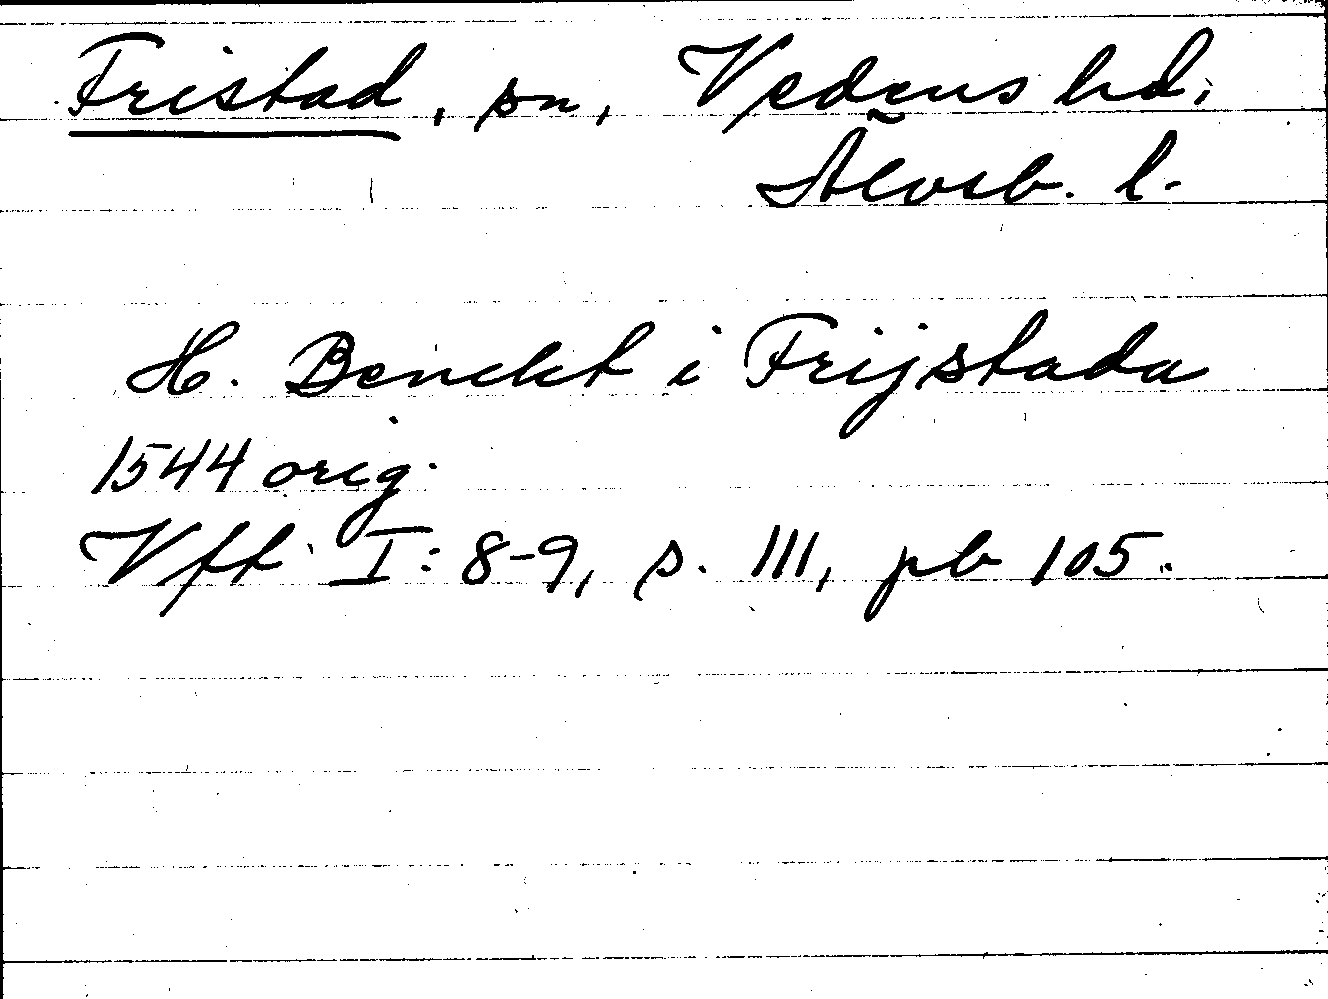 Fristad, sn, Vedens hd,
Älvsb. l.
H. Benckt i Frijstada
1544 orig.
Vft I: 8-9, s. 111, pb 105.